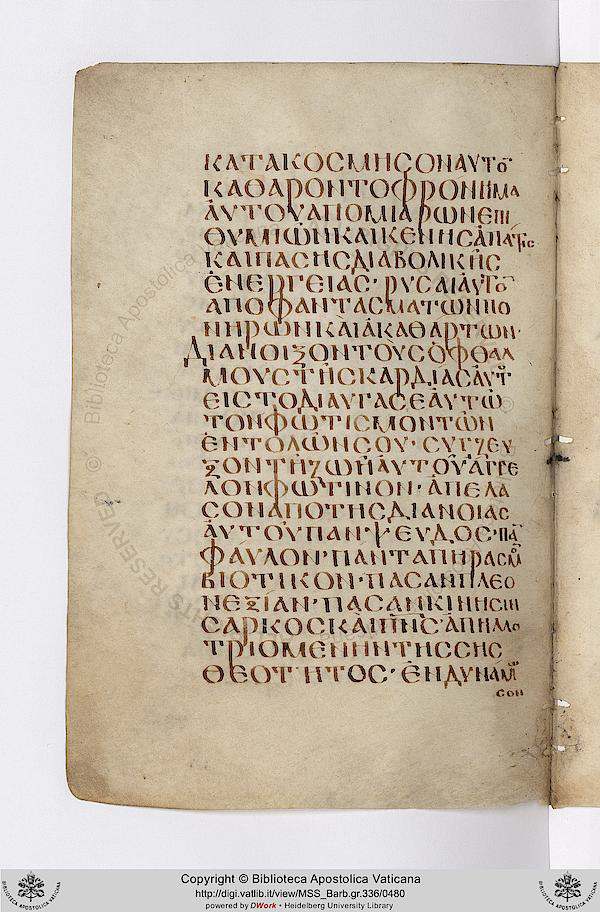 ΚΑΤΑΚΟСΜΗСΟΝΑΥΤΟ
ΚΑΘΑΡΟΝΤΟΦΡΟΝΗΜΑ
ΑΥΤΟΥΑΠΟΜΙΑΡΩΝΕΠΙ
ΘΥΜΙΩΝΚΑΙΚΕΝΗСΑΠΑΤΗС
ΚΑΙΠΑСΗСΔΙΑΒΟΛΙΚΗС
ΕΝΕΡΓΕΙΑС·ΡΥСΑΙΑΥΤΟ
ΑΠΟΦΑΝΤΑСΜΑΤΩΝΠΟ
ΝΗΡΩΝΚΑΙΑΚΑΘΑΡΤΩΝ·
ΔΙΑΝΟΙΞΟΝΤΟΥСΟΦΘΑΛ
ΜΟΥСΤΗСΚΑΡΔΙΑСΑΥΤ
ΕΙСΤΟΔΙΑΥΓΑСΕΑΥΤΩ
ΤΟΝΦΩΤΙСΜΟΝΤΩΝ
ΕΝΤΟΛΩΝСΟΥ·СΥΓΖΕΥ
ΞΟΝΤΗΖΩΗΑΥΤΟΥΑΓΓΕ
ΛΟΝΦΩΤΙΝΟΝ·ΑΠΕΛΑ
СΟΝΑΠΟΤΗСΔΙΑΝΟΙΑС
ΑΥΤΟΥΠΑΝΨΕΥΔΟС·ΠΑ
ΦΑΥΛΟΝ·ΠΑΝΤΑΠΗΡΑСΜ
ΒΙΟΤΙΚΟΝ·ΠΑСΑΝΠΛΕΟ
ΝΕΞΙΑΝ·ΠΑСΑΝΚΙΝΗСΙΝ
СΑΡΚΟСΚΑΙΠΝС·ΑΠΗΛΛΟ
ΤΡΙΟΜΕΝΗΝΤΗССΗС
ΘΕΟΤΗΤΟС·ΕΝΔΥΝΑΜ
СΟΝ
Biblioteca Apostolica Vaticana
RIGHTS RESERVED ©
Copyright © Biblioteca Apostolica Vaticana
http://digi.vatlib.it/view/MSS_Barb.gr.336/0480
powered by DWork • Heidelberg University Library